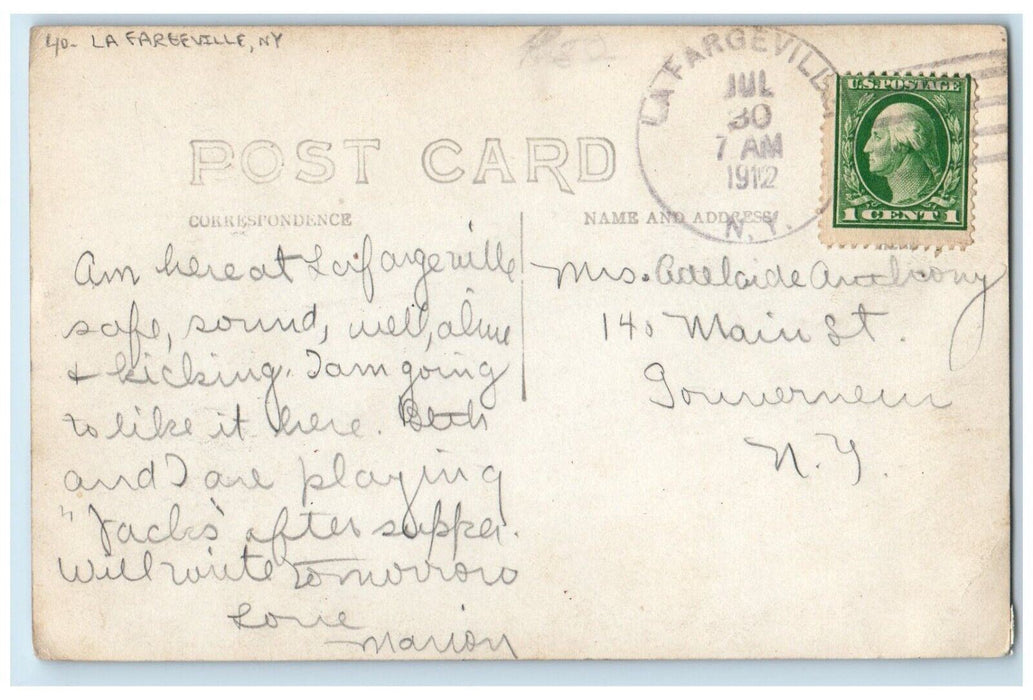 40- LA FARGEVILLE, NY
LA FARGEVILLE
JUL
30
7 AM
1912
N.Y.
U.S. POSTAGE
1 CENT 1
POST CARD
CORRESPONDENCE
NAME AND ADDRESS
Am here at Lafargeville
safe, sound, well, alive
+ kicking. I am going
to like it here. Beth
and I are playing
"Jacks" after supper.
Will write tomorrow
Love
Marion
Mrs. Adelaide Anthony
140 Main St.
Gouverneur
N.Y.